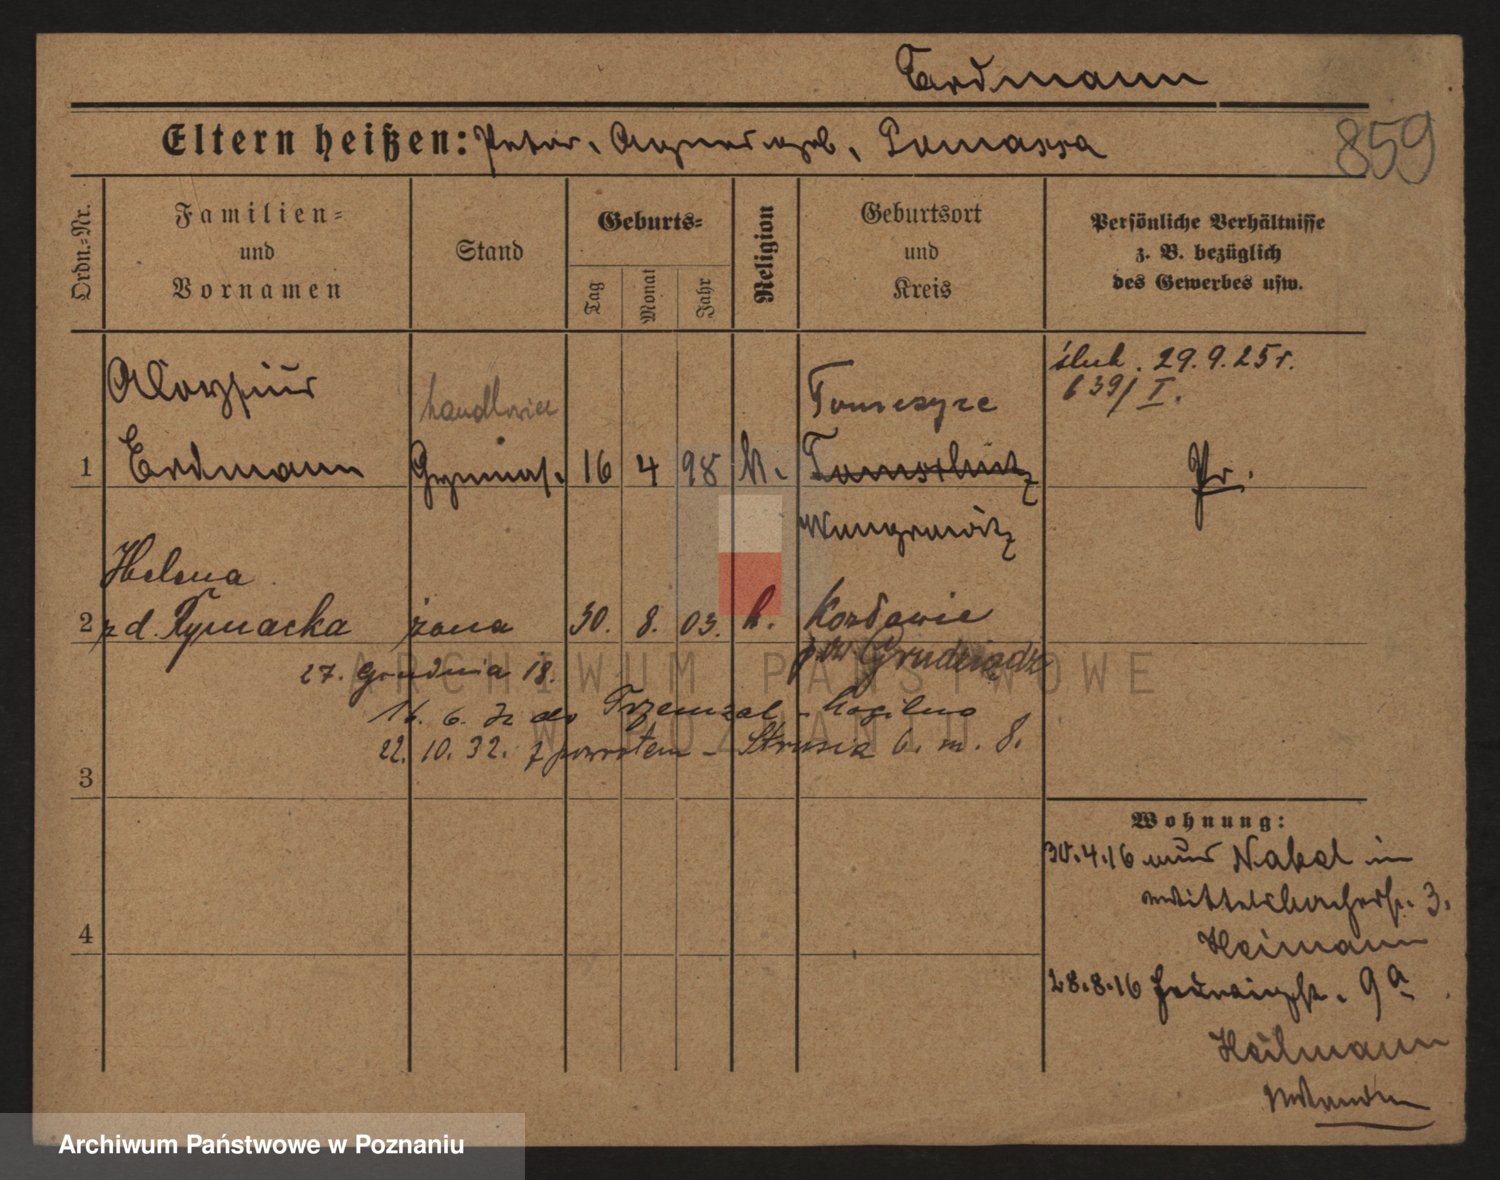 Erdmann
Eltern heißen: Peter, Agnes geb. Tomassa
859
Ordn.=Nr.
Familien=
und
Vornamen
Stand
Geburts=
Tag
Monat
Jahr
Religion
Geburtsort
und
Kreis
Persönliche Verhältnisse
z. B. bezüglich
des Gewerbes usw.
Aloysius
handlowiec
Tomczyce
ślub. 29.9.25r.
639/I.
1
Erdmann
Gymnas.
16
4
98
k.
Pr.
Wongrowitz
Helena
2
z d. Rymacka
żona
30.
8.
03.
k.
Kozłowie
pow Grudziądz
27. Grudnia 18.
16. 6. 32 do Trzemżal - Mogilno
22. 10. 32. z powrotem - Strusia 6. m. 8.
3
Wohnung:
30.4.16 aus Nakel in
Mittelsbacherstr. 3.
Heimann
4
28.8.16 Hedwigstr. 9a
Heilmann
ARCHIWUM PAŃSTWOWE
W POZNANIU
Archiwum Państwowe w Poznaniu